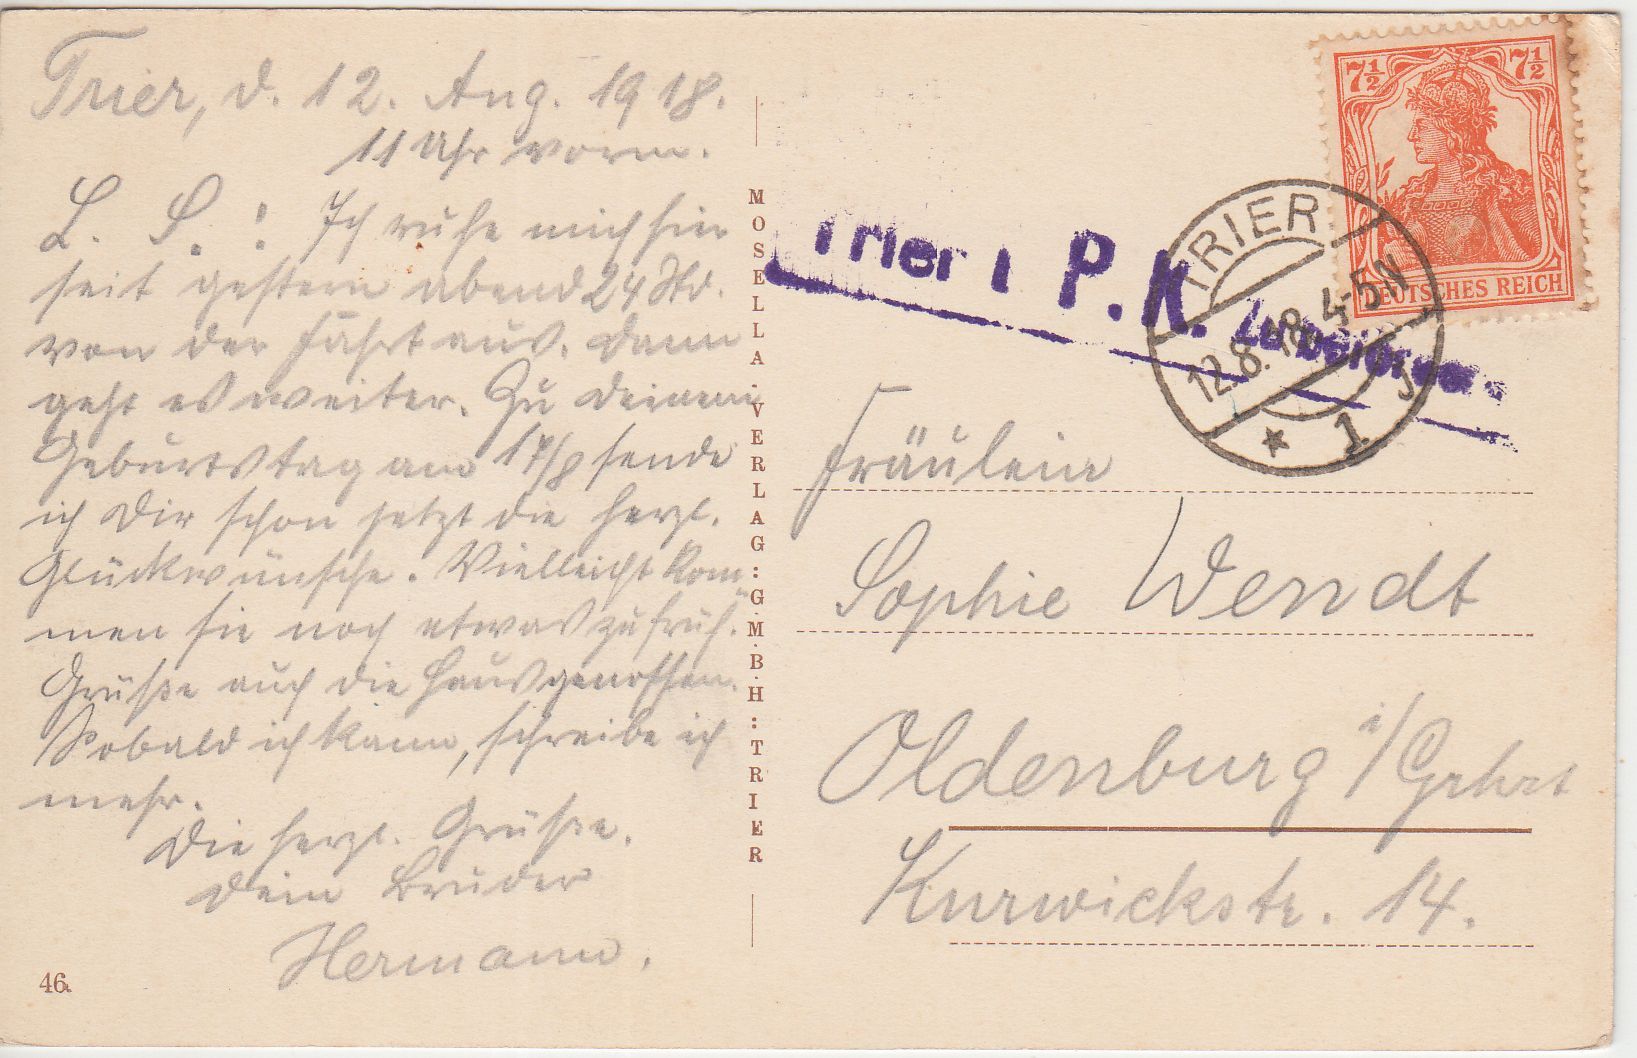 Trier, d. 12. Aug. 1918.
11 Uhr vorm.
L. S.! Ich ruhe mich hier
seit gestern abend 24 Std.
von der Fahrt aus. Dann
geht es weiter. Zu Deinem
Geburtstag am 17/8 sende
ich Dir schon jetzt die herzl.
Glückwünsche. Vielleicht kom-
men sie noch etwas zu früh.
Grüße auch die Hausgenossen.
Sobald ich kann, schreibe ich
mehr.
Die herzl. Grüße.
Dein Bruder
Hermann.
46.
MOSELLA-VERLAG: G.M.B.H: TRIER
7½ 7½
DEUTSCHES REICH
TRIER
12.8.18. 4-5N
* 1
Trier 1 P.K.
Fräulein
Sophie Wendt
Oldenburg i/Grhrt
Kurwickstr. 14.